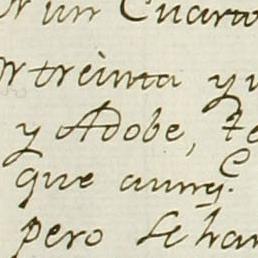 r un Cuarto
r treinta y u
y Adobe, te
que aunq.e
pero se han